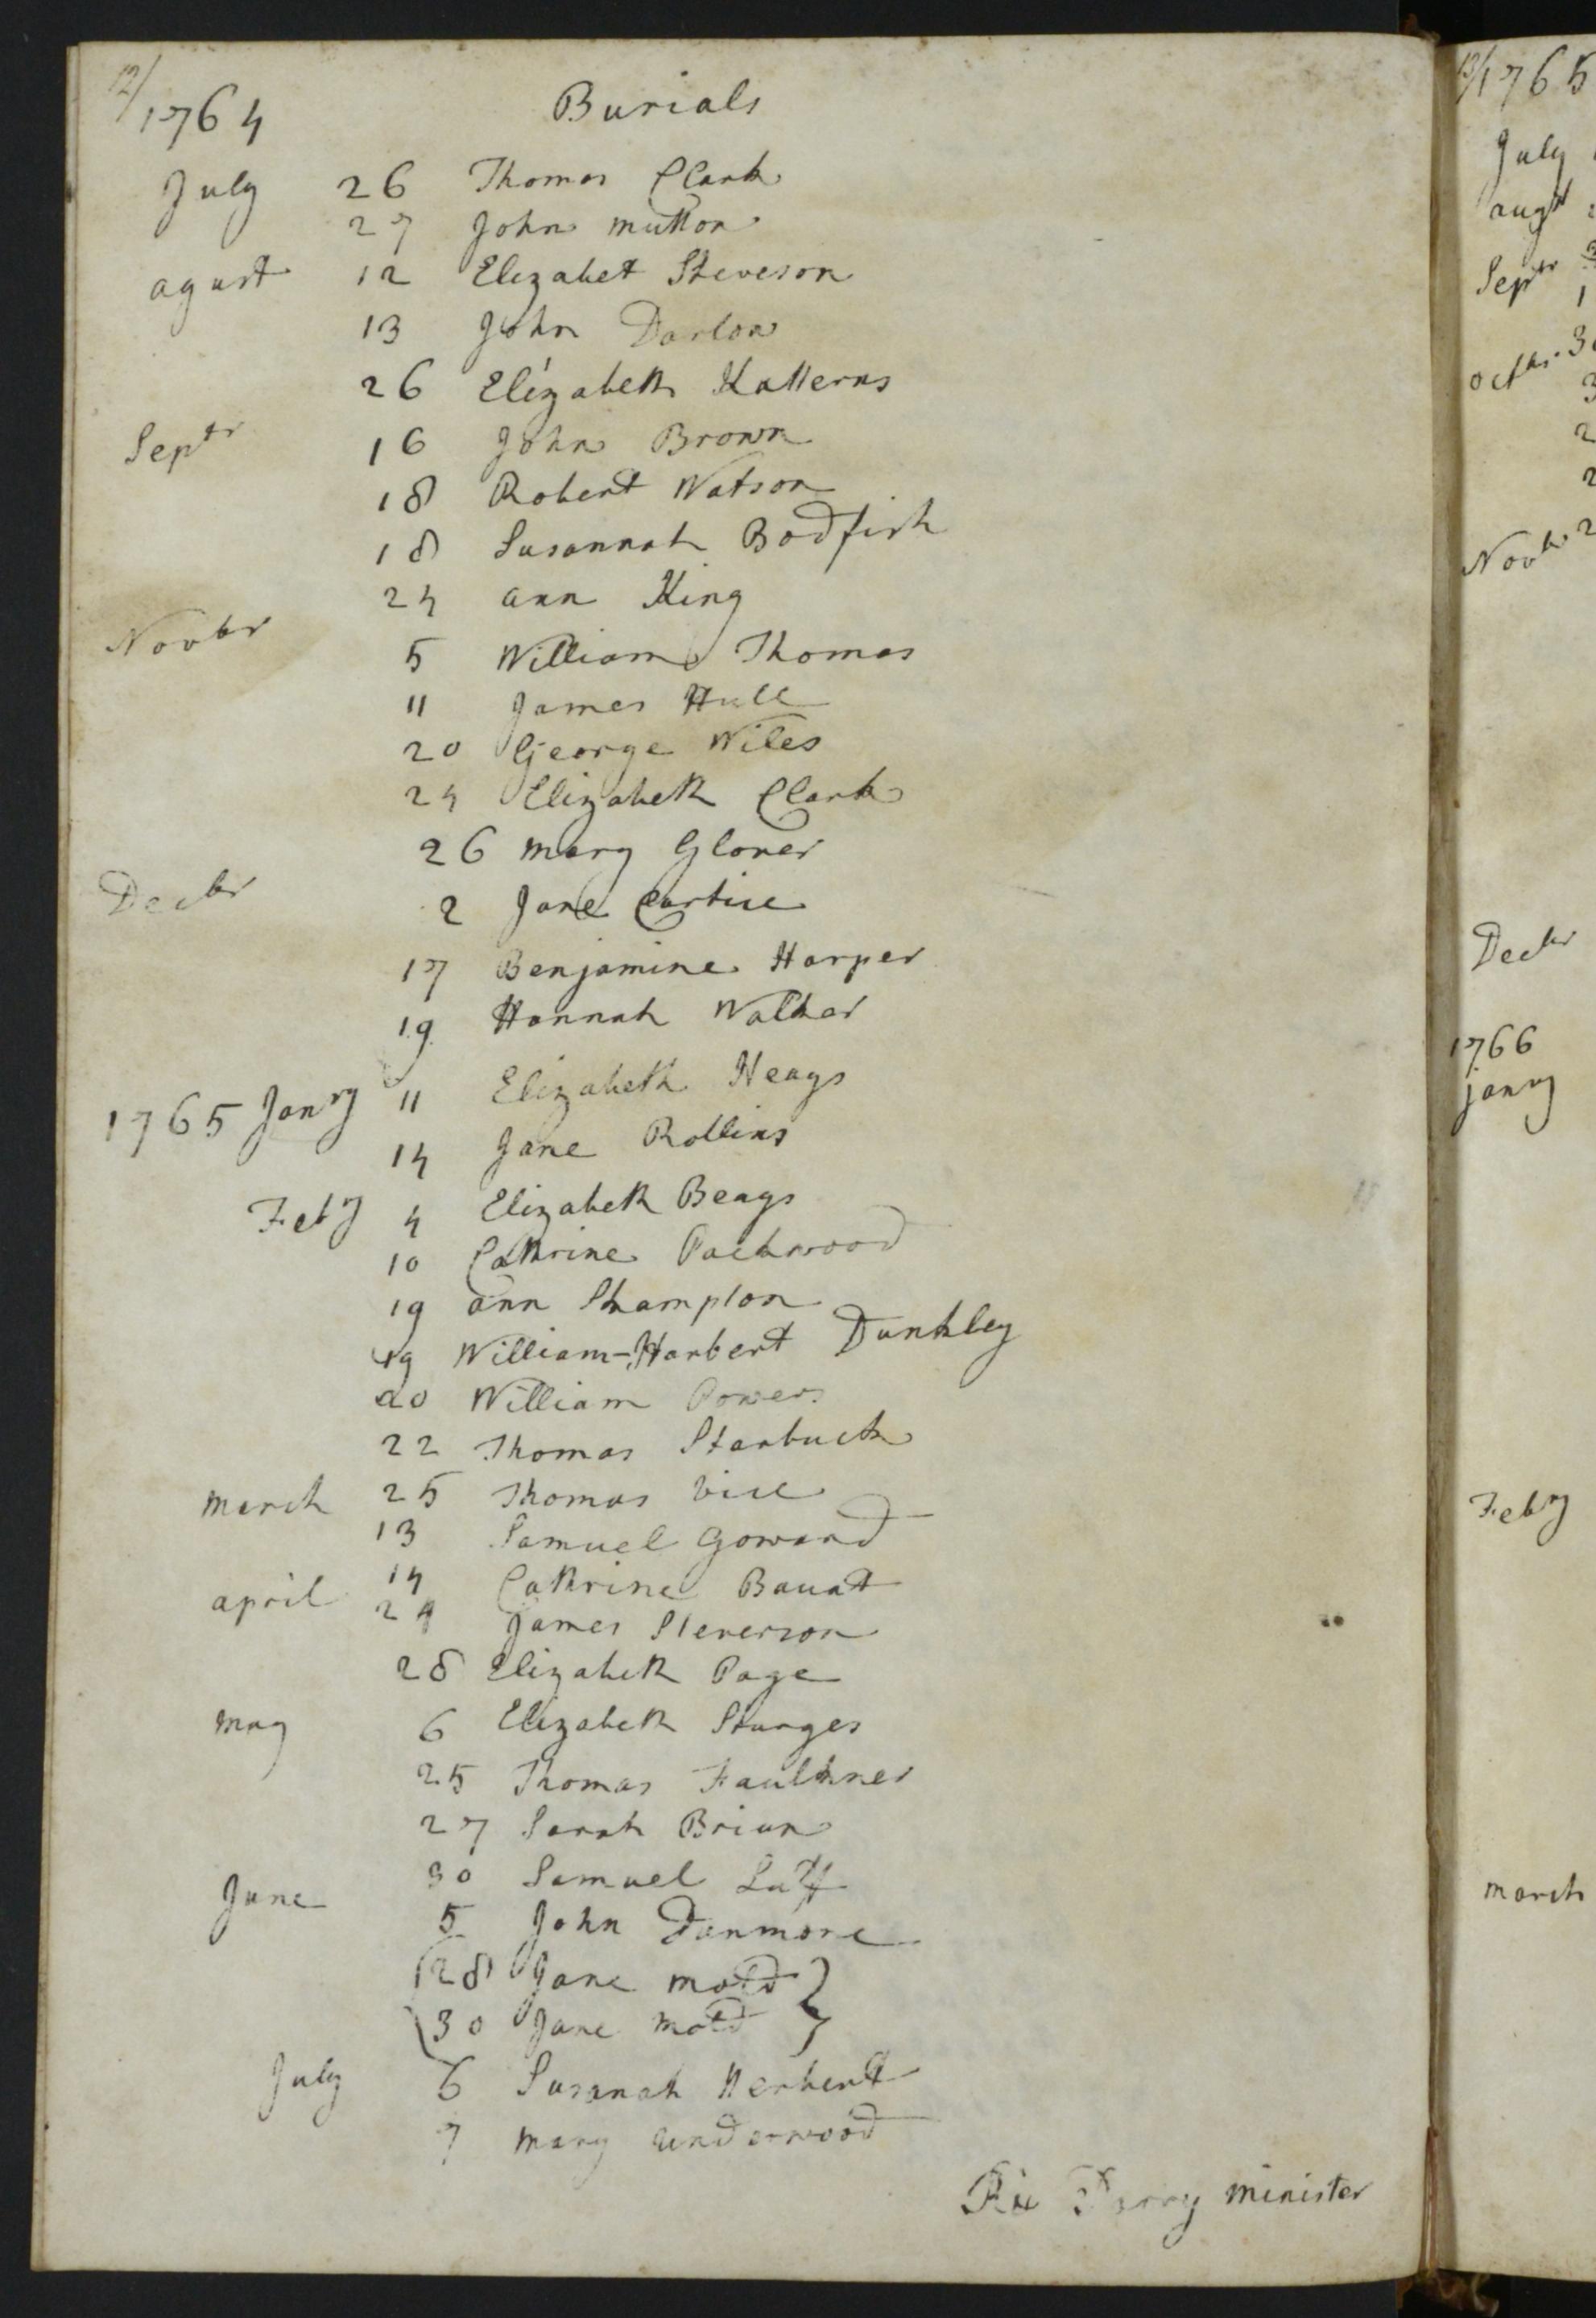 12/
1764 Burials
July 26 Thomas Clark
27 John mutton
agust 12 Elizabet Steveson
13 John Darlow
26 Elizabeth Katterns
Septr 16 John Brown
18 Robert Watson
18 Susannah Bodfish
24 ann King
Novbr 5 William Thomas
11 James Hull
20 George Wiles
24 Elizabeth Clark
26 mary Glover
Decbr 2 Jane Curtice
17 Benjamine Harper
19 Hannah Walker
1765 Janry 11 Elizabeth Neags
14 Jane Rollins
Feby 4 Elizabeth Beags
10 Cathrine Packwood
19 ann Shampton
19 William-Harbert Dunkley
20 William Powers
22 Thomas Starbuck
march 25 Thomas vice
13 Samuel Goward
14 Cathrine
april 24 James Steverson
28 Elizabeth Page
may 6 Elizabeth Sturges
25 Thomas Faulkner
27 Sarah Briun
30 Samuel
June 5 John Dunmore
28 Jane mold
30 Jane mold
July 6 Susanah Herbert
7 mary underwood
minister
13/1765
July
augst
Septr
octbr
Novbr
Decbr
1766
janry
Feby
march